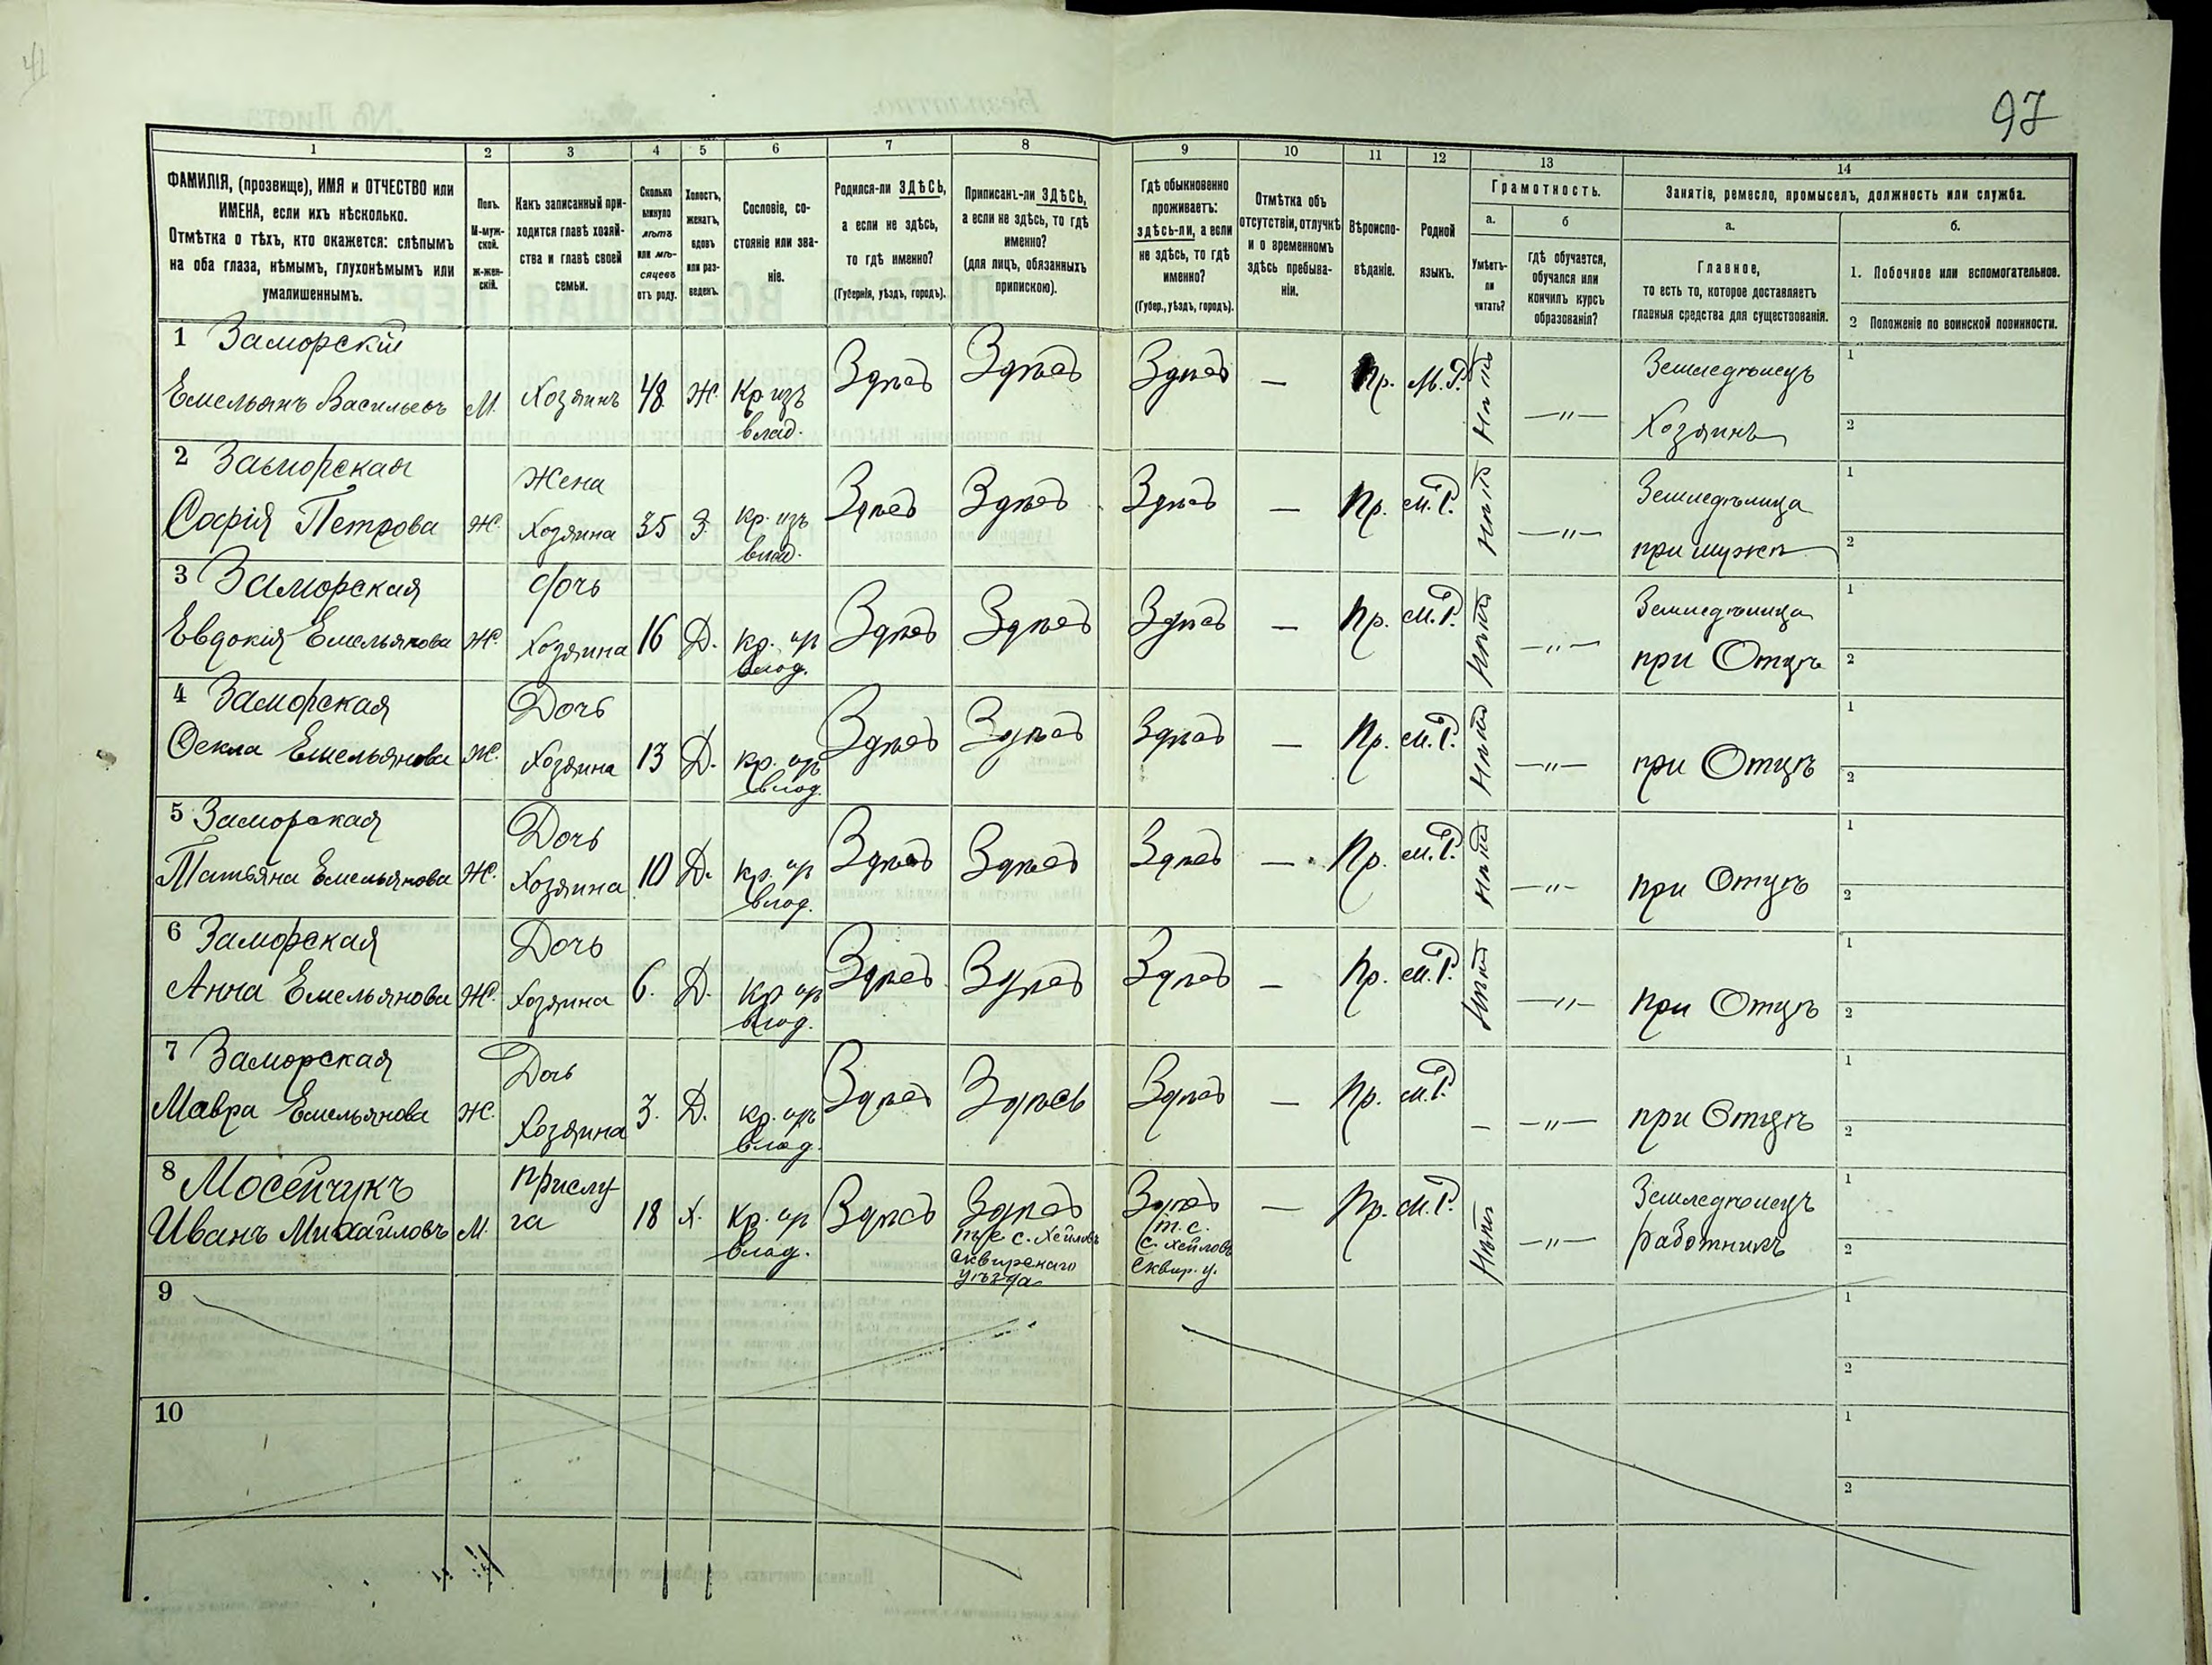 41
97
1 2 3 4 5 6 7 8 9 10 11 12 13 14
ФАМИЛІЯ, (прозвище), ИМЯ и ОТЧЕСТВО или
ИМЕНА, если ихъ нѣсколько.
Отмѣтка о тѣхъ, кто окажется: слѣпымъ
на оба глаза, нѣмымъ, глухонѣмымъ или
умалишеннымъ.
Полъ.
М-муж-
ской.
ж-жен-
скій.
Какъ записанный при-
ходится главѣ хозяй-
ства и главѣ своей
семьи.
Сколько
минуло
лѣтъ
или мѣ-
сяцевъ
отъ роду.
Холостъ,
женатъ,
вдовъ
или раз-
веденъ.
Сословіе, со-
стояніе или зва-
ніе.
Родился-ли ЗДѢСЬ,
а если не здѣсь,
то гдѣ именно?
(Губернія, уѣздъ, городъ).
Приписанъ-ли ЗДѢСЬ,
а если не здѣсь, то гдѣ
именно?
(для лицъ, обязанныхъ
припискою).
Гдѣ обыкновенно
проживаетъ:
здѣсь-ли, а если
не здѣсь, то гдѣ
именно?
(Губер., уѣздъ, городъ).
Отмѣтка объ
отсутствіи, отлучкѣ
и о временномъ
здѣсь пребыва-
ніи.
Вѣроиспо-
вѣданіе.
Родной
языкъ.
Грамотность.
а.
Умѣетъ-
ли
читать?
б
гдѣ обучается,
обучался или
кончилъ курсъ
образованія?
Занятіе, ремесло, промыселъ, должность или служба.
а.
Главное,
то есть то, которое доставляетъ
главныя средства для существованія.
б.
1. Побочное или вспомогательное.
2 Положеніе по воинской повинности.
1 Заморскій
Емельянъ Васильевъ М. Хозяинъ 48 Ж. Кр. изъ влад. Здѣсь Здѣсь Здѣсь — Пр. М.Р. Нѣтъ —"— Земледѣлецъ Хозяинъ 1 2
2 Заморская
Софія Петрова Ж. Жена Хозяина 35 З. Кр. изъ влад. Здѣсь Здѣсь Здѣсь — Пр. М.Р. Нѣтъ —"— Земледѣлица при мужѣ 1 2
3 Заморская
Евдокія Емельянова Ж. Дочь Хозяина 16 Д. Кр. из влад. Здѣсь Здѣсь Здѣсь — Пр. М.Р. Нѣтъ —"— Земледѣлица при Отцѣ 1 2
4 Заморская
Ѳекла Емельянова Ж. Дочь Хозяина 13 Д. Кр. из влад. Здѣсь Здѣсь Здѣсь — Пр. М.Р. Нѣтъ —"— при Отцѣ 1 2
5 Заморская
Татьяна Емельянова Ж. Дочь Хозяина 10 Д. Кр. из влад. Здѣсь Здѣсь Здѣсь — Пр. М.Р. Нѣтъ —"— при Отцѣ 1 2
6 Заморская
Анна Емельянова Ж. Дочь Хозяина 6. Д. Кр. из влад. Здѣсь Здѣсь Здѣсь — Пр. М.Р. Нѣтъ —"— при Отцѣ 1 2
7 Заморская
Мавра Емельянова Ж. Дочь Хозяина 3. Д. Кр. изъ влад. Здѣсь Здѣсь Здѣсь — Пр. М.Р. — —"— при Отцѣ 1 2
8 Мосейчукъ
Иванъ Михайловъ М. прислуга 18 Х. Кр. из влад. Здѣсь Здѣсь т/е с. Хейловѣ Сквирскаго уѣзда Здѣсь т.е. с. Хейловѣ Сквир. у. — Пр. М.Р. Нѣтъ —"— Земледѣлецъ работникъ 1 2
9 1 2
10 1 2